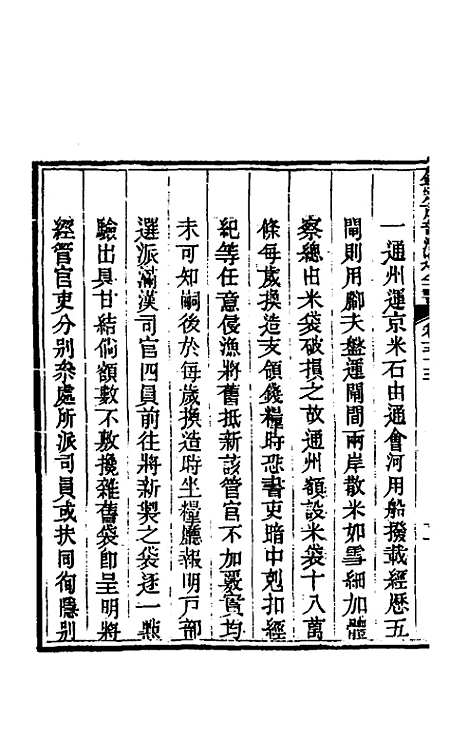 一通州運京米石由通會河用船撥載經歴五
閘則用腳夫盤運閘間兩岸散米如雪細加體
察總由米袋破損之故通州額設米袋十八萬
條每歲換造支領錢糧時恐書吏暗中剋扣經
紀等任意侵漁將舊抵新該管官不加嚴實均
未可知嗣後於每歲換造時坐糧廳報明戸部
選派滿漢司官四員前往將新製之袋逐一點
驗出具甘結倘額數不敷攙雜舊袋卽呈明將
經管官吏分别叅處所派司員或扶同徇隱别